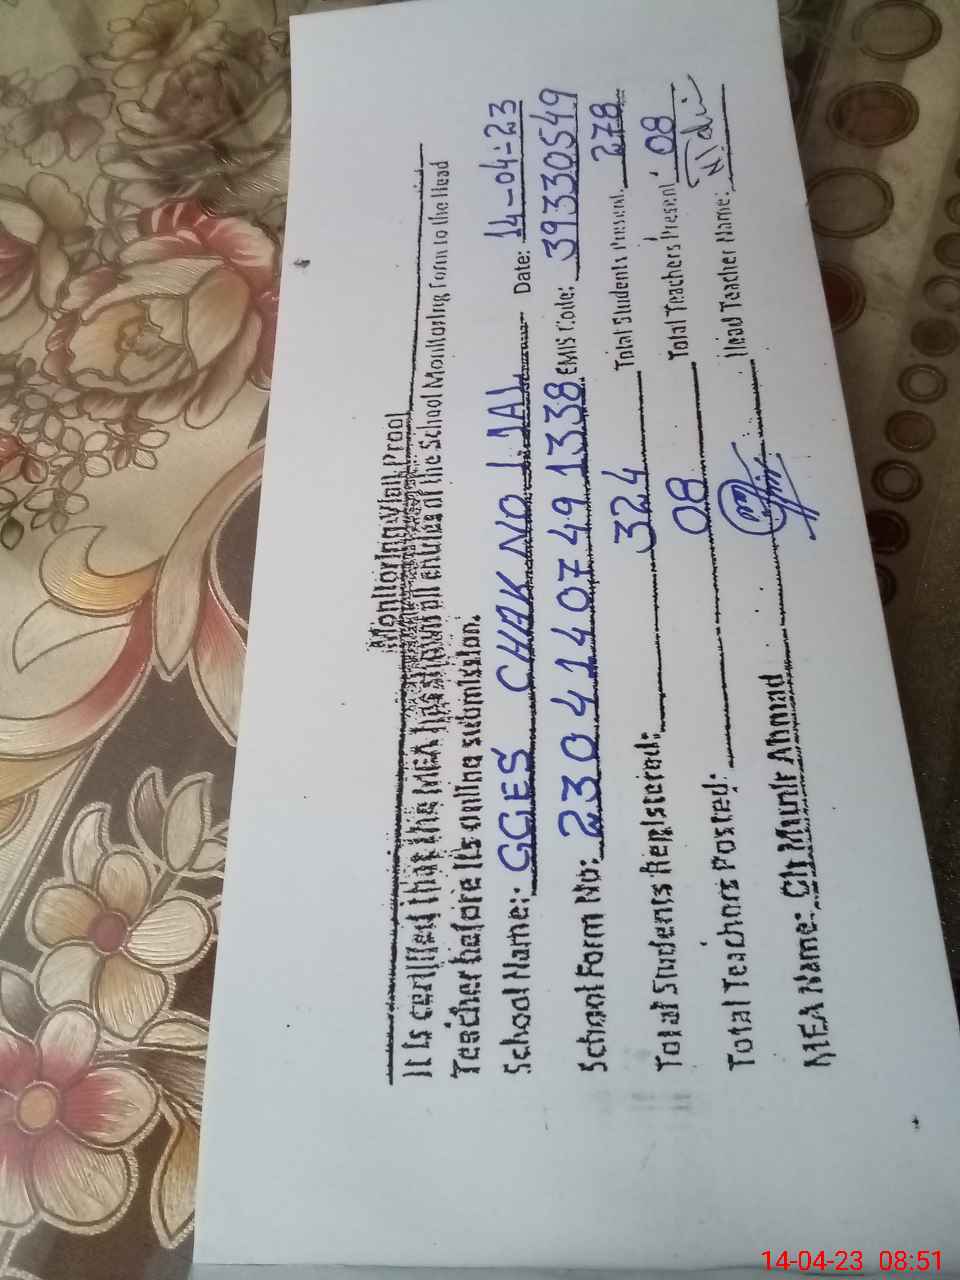 Monitoring Visit Proof
It is certified that the MEA has shown all entries of the School Monitoring Form to the Head
Teacher before its online submission.
School Name: GGES CHAK NO 1 JAL Date: 14-04-23
School Form No: 23041407491338 EMIS Code: 39330549
Total Students Registered: 324 Total Students Present. 278
Total Teachers Posted: 08 Total Teachers Present 08
MEA Name: Ch Munir Ahmad Head Teacher Name:
14-04-23 08:51